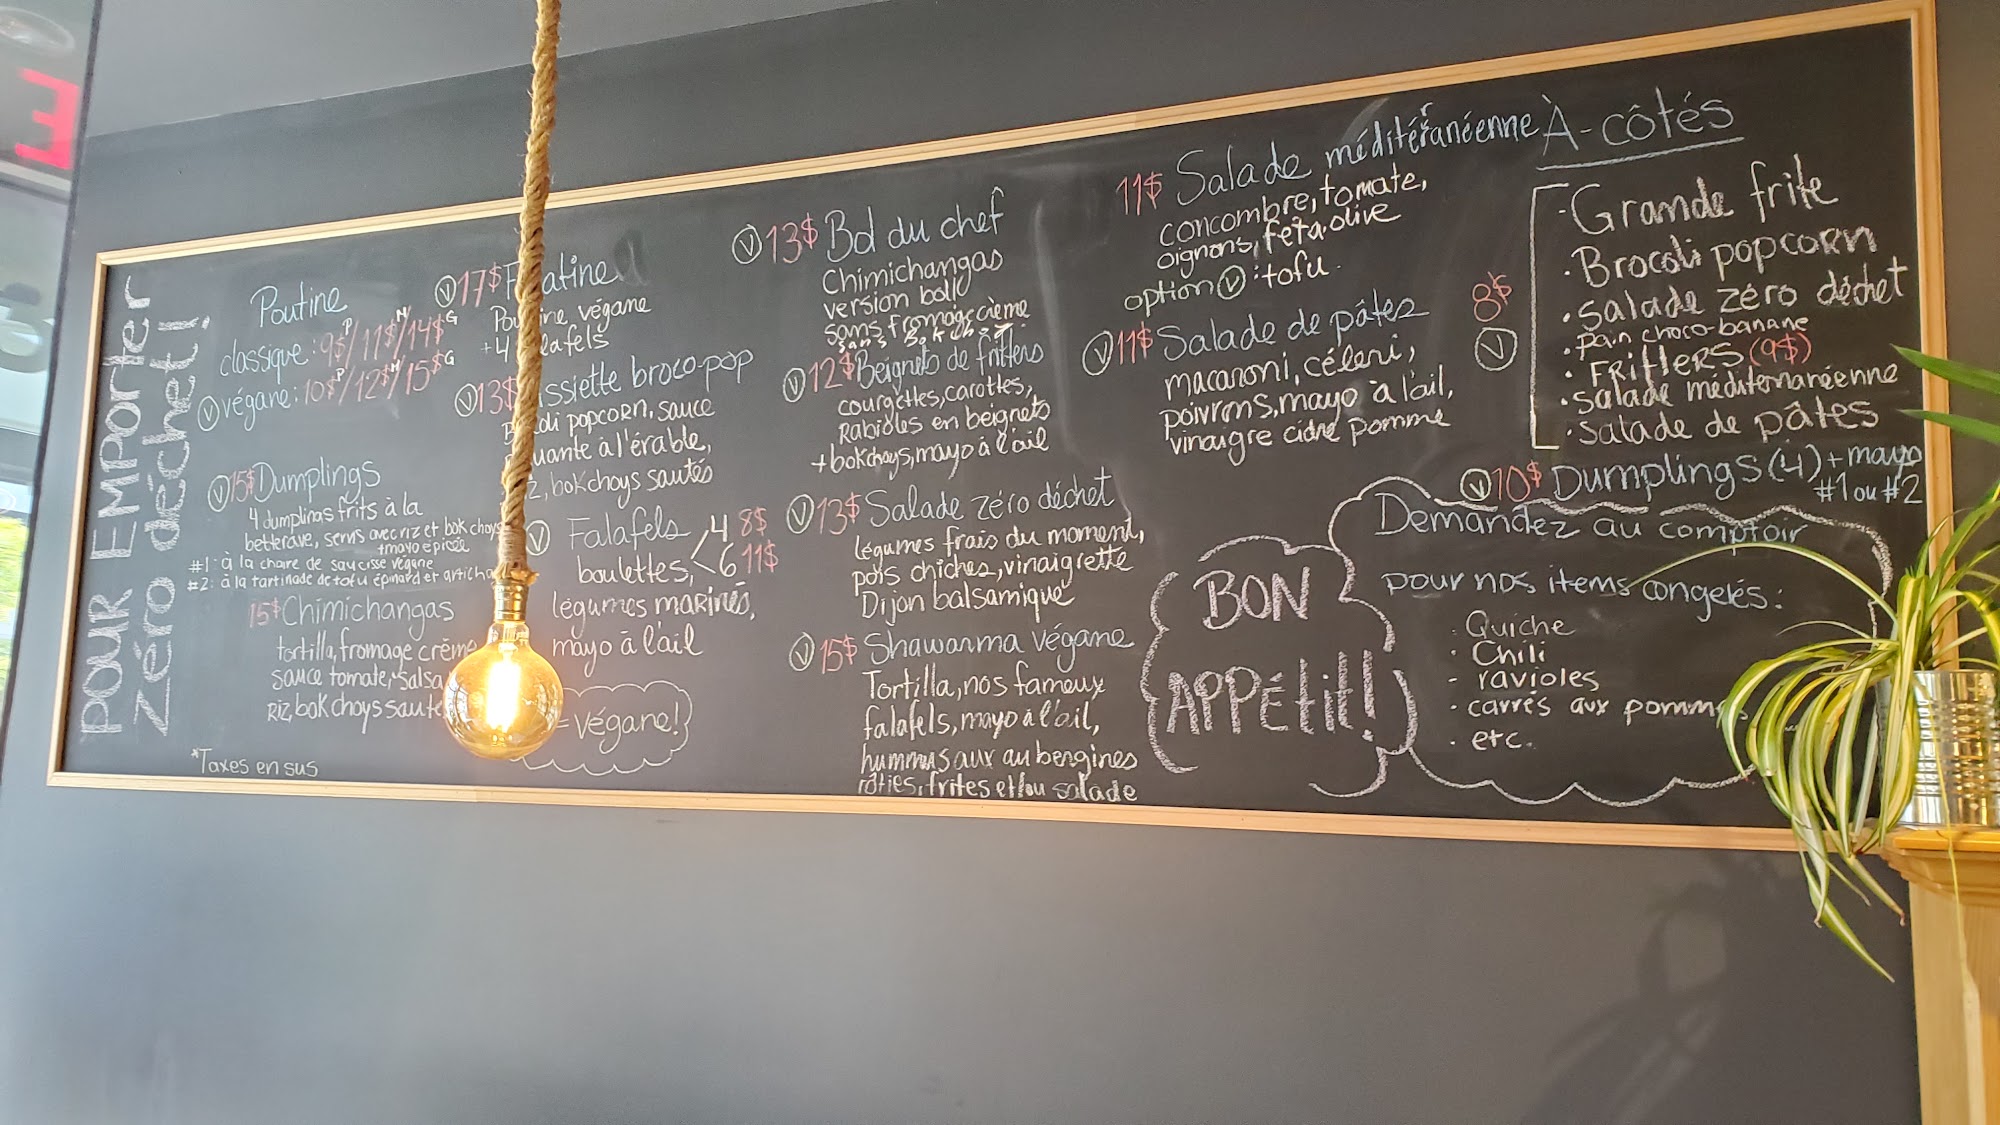 POUR EMPORTER
zéro déchet!
Poutine
classique: 9$P/11$N/14$G
Ⓥ végane: 10$P/12$N/15$G
Ⓥ 15$ Dumplings
4 dumplings frits à la
betterave, servis avec riz et bok choys
+mayo épicée
#1: à la chaire de saucisse végane
#2: à la tartinade de tofu épinard et articha
15$ Chimichangas
tortilla, fromage crème
sauce tomate, salsa
Riz, bok choys saute
*Taxes en sus
Ⓥ 17$ F latine
Pou ine végane
+4 lafels
Ⓥ 13$ ssiette broco-pop
B coli popcorn, sauce
uante à l'érable,
z, bok choys sautés
Ⓥ Falafels 4 8$
boulettes, 6 11$
légumes marinés,
mayo à l'ail
= végane!
Ⓥ 13$ Bol du chef
Chimichangas
version bol
sans fromage crème
sans bok choy
Ⓥ 12$ Beignets de fritters
courgettes, carottes,
Rabioles en beignets
+bokchoys, mayo à l'ail
Ⓥ 13$ Salade zéro déchet
légumes frais du moment,
pois chiches, vinaigrette
Dijon balsamique
Ⓥ 15$ Shawarma végane
Tortilla, nos fameux
falafels, mayo à l'ail,
hummus aux aubergines
rôties, frites et/ou salade
11$ Salade méditérranéenne
concombre, tomate,
oignons, feta, olive
option Ⓥ: tofu
Ⓥ 11$ Salade de pâtes
macaroni, céleri,
poivrons, mayo à l'ail,
vinaigre cidre pomme
BON
APPÉtit!
À-côtés
8$
Ⓥ
· Grande frite
· Brocoli popcorn
· salade zéro déchet
· pain choco-banane
· FRitteRS (9$)
· salade méditerranéenne
· salade de pâtes
Ⓥ 10$ Dumplings (4) + mayo
#1 ou #2
Demandez au comptoir
pour nos items congelés:
· Quiche
· Chili
- ravioles
· carrés aux pommes
· etc.